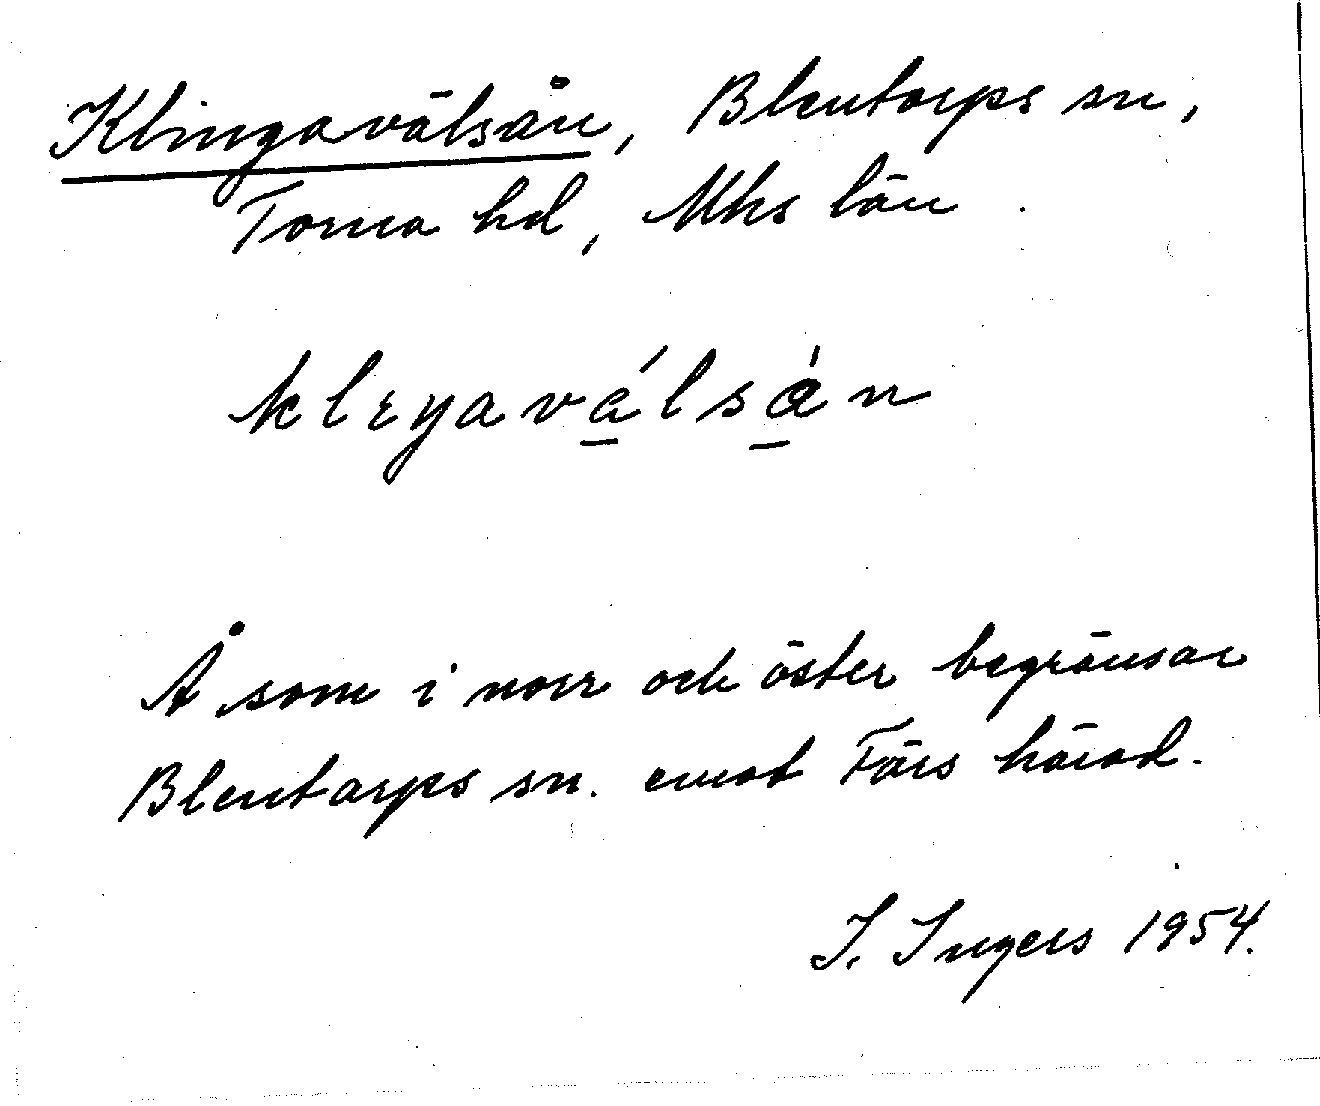 Klingavälsån, Blentarps sn,
Torna hd, Mhs län.
klıŋavá̱lså̱̀n
Å som i norr och öster begränsar
Blentarps sn. emot Färs härad.
I. Ingers 1954.